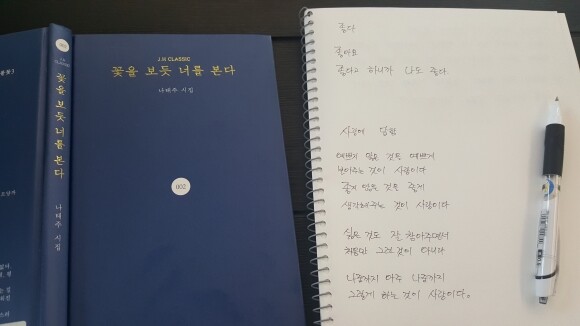 J.H CLASSIC
꽃을 보듯 너를 본다
나태주 시집
002
002
J.H CLASSIC
꽃을 보듯 너를 본다
나태주 시집
좋다
좋아요
좋다고 하니까 나도 좋다
사랑에 답함
예쁘지 않은 것을 예쁘게
보아주는 것이 사랑이다
좋지 않은 것을 좋게
생각해주는 것이 사랑이다
싫은 것도 잘 참아주면서
처음만 그런 것이 아니라
나중까지 아주 나중까지
그렇게 하는 것이 사랑이다。